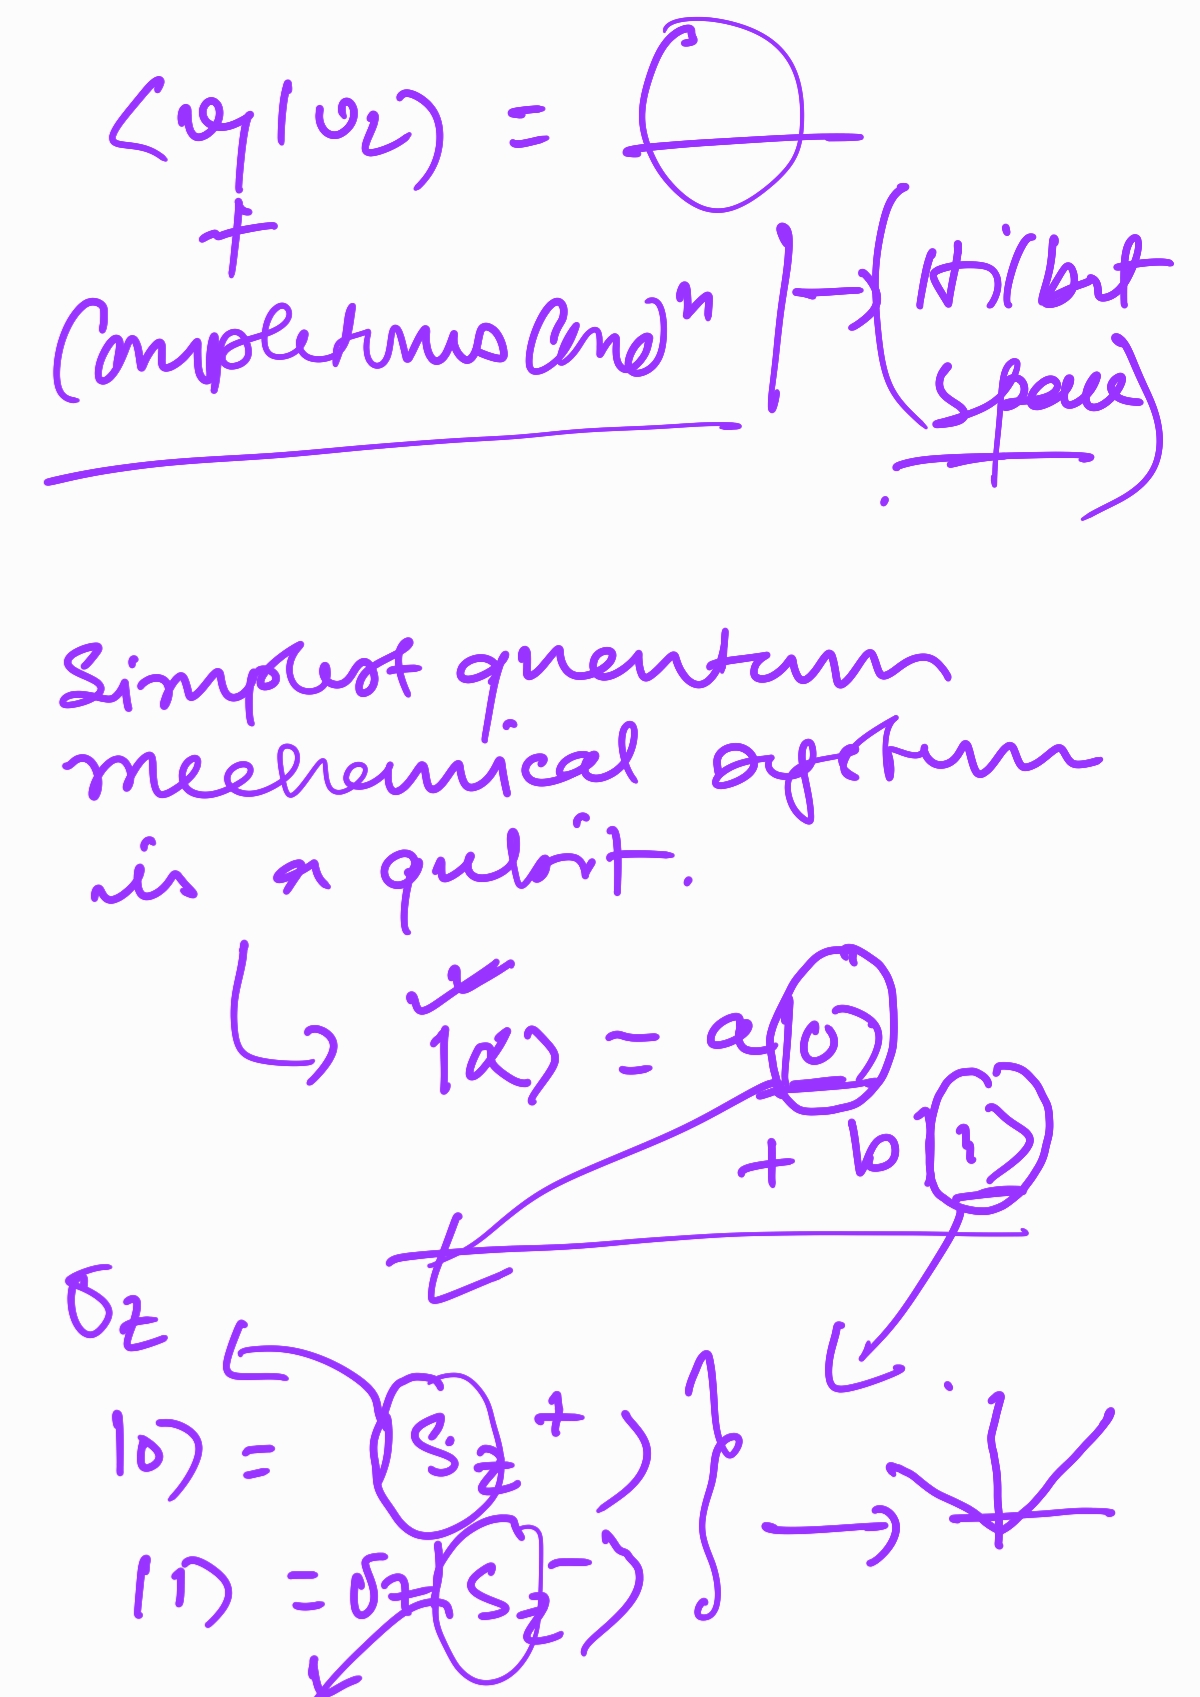 ⟨v1|v2⟩ = 0
+
Completeness Cond^n → (Hilbert space)
Simplest quantum
mechanical system
is a qubit.
|α⟩ = a|0⟩
+ b|1⟩
σz
|0⟩ = |Sz+⟩
|1⟩ = σz |Sz-⟩